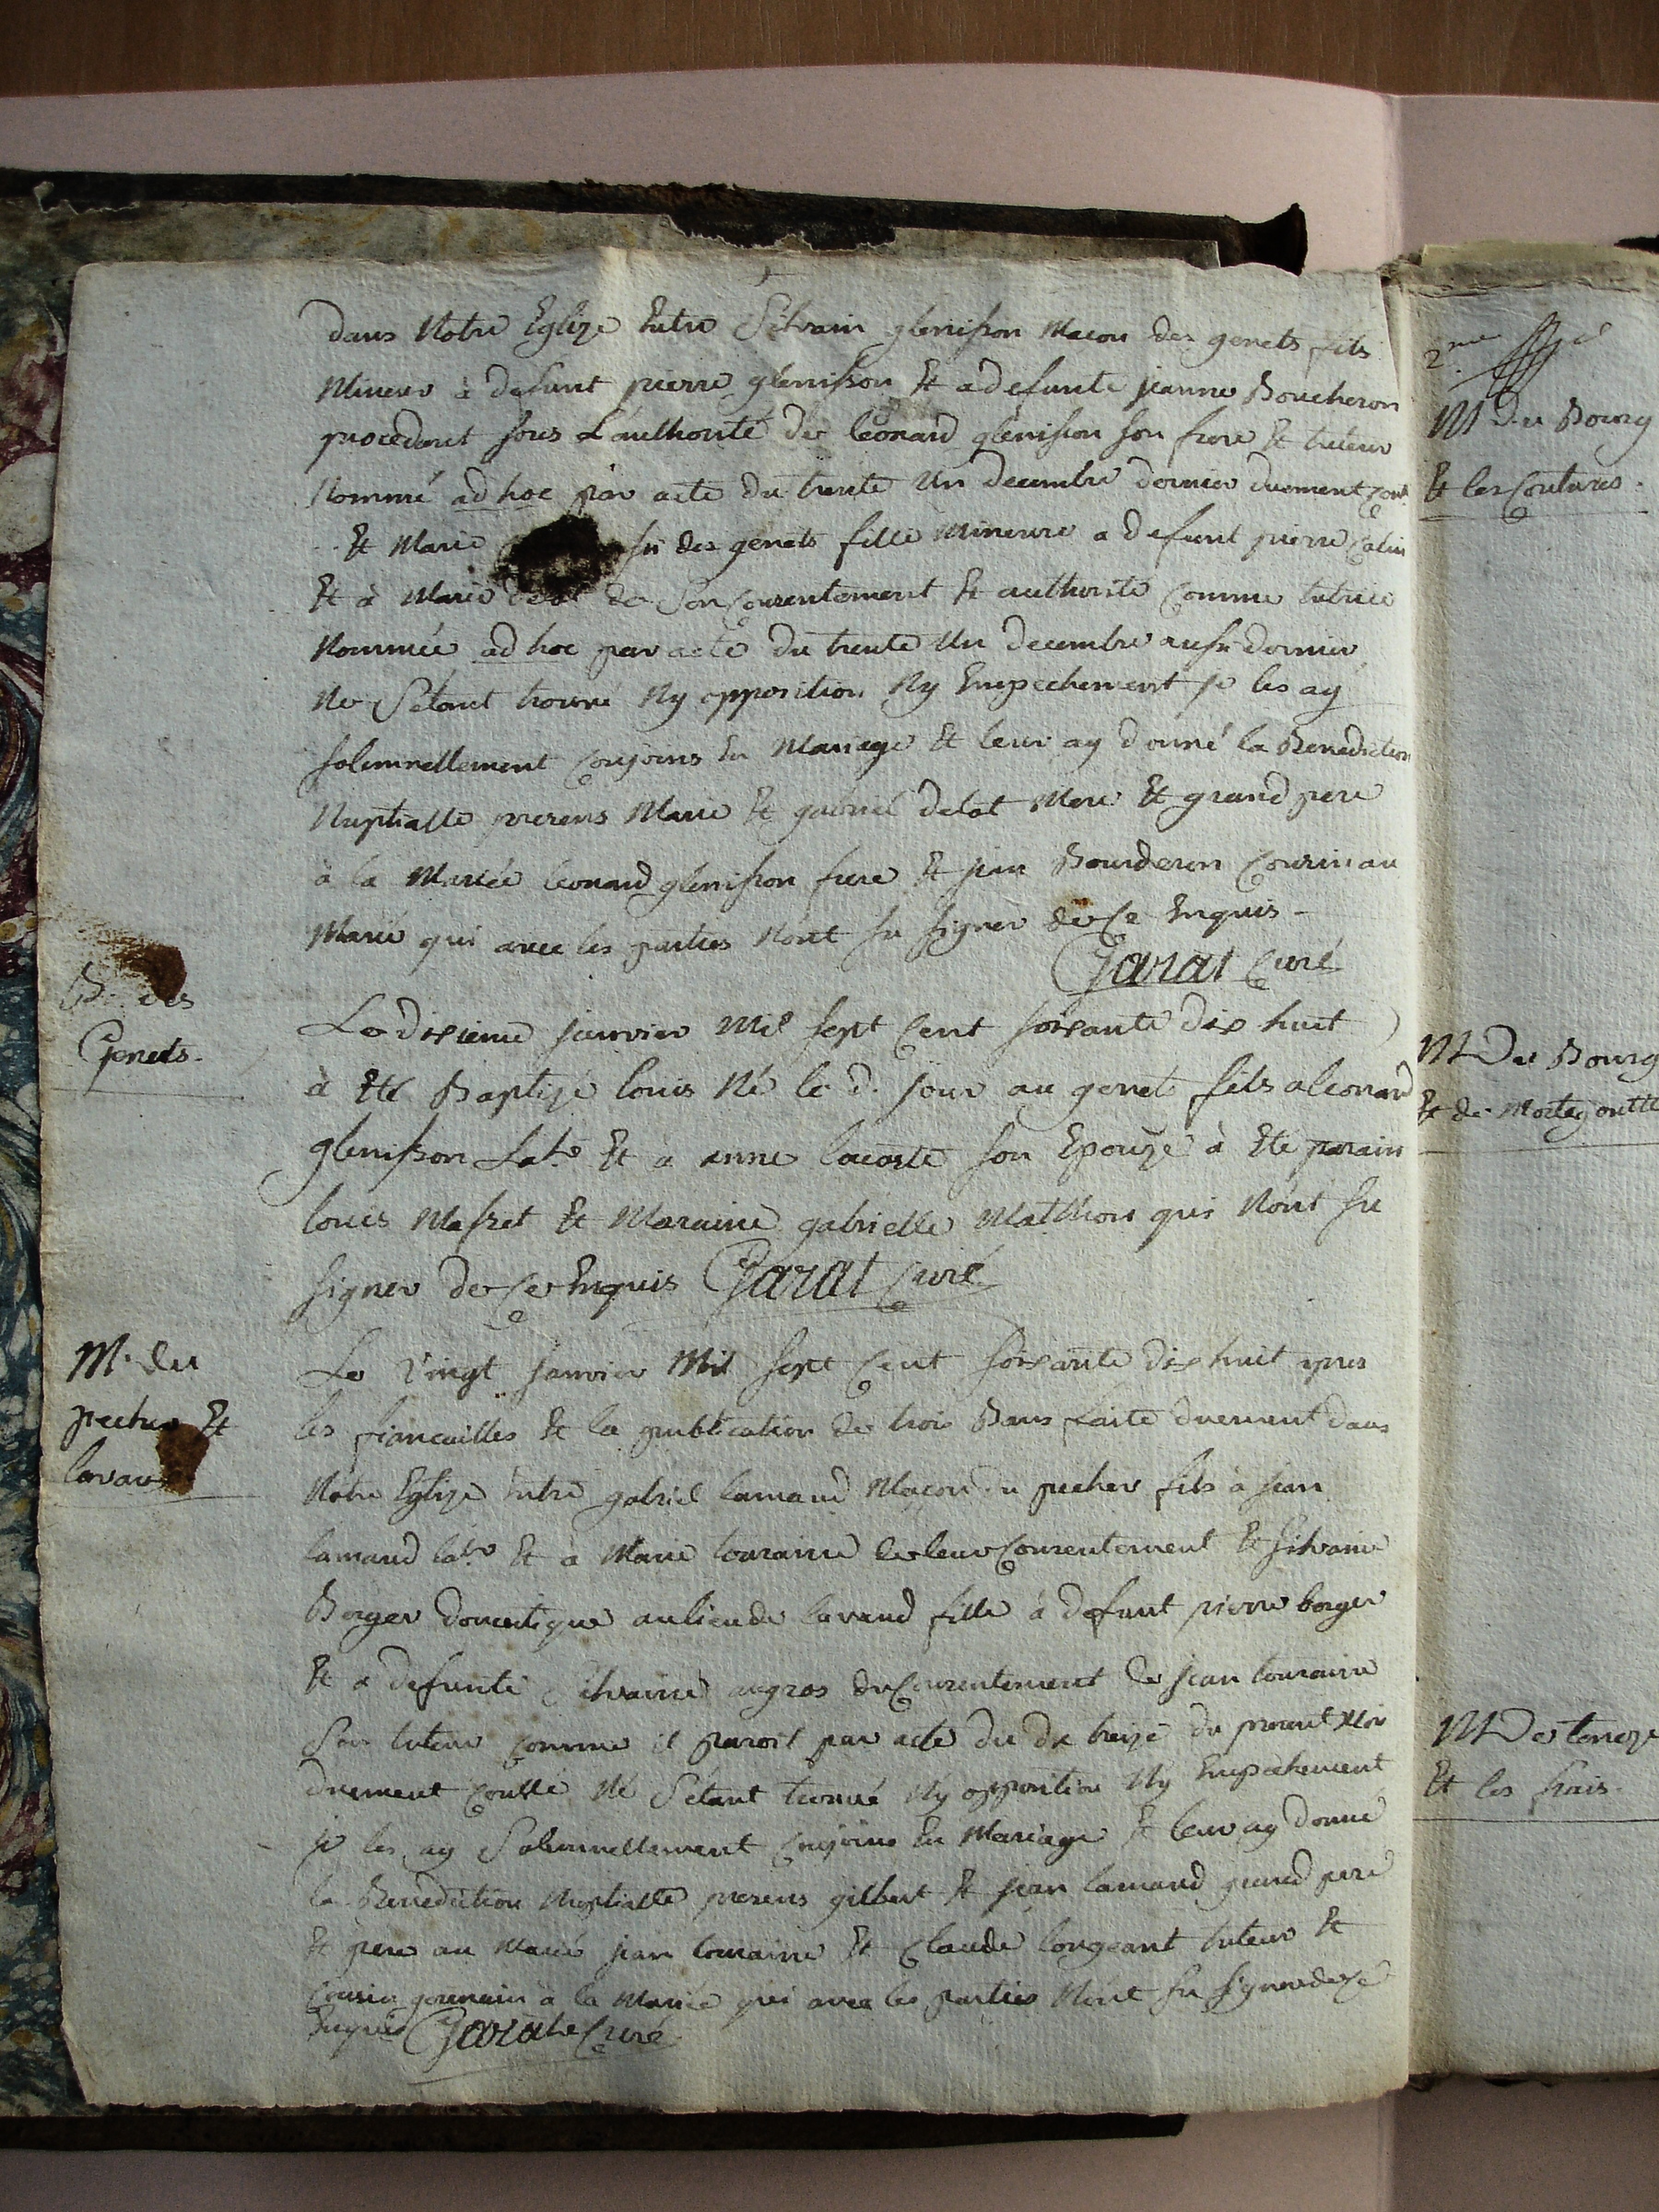 dans Notre Eglize Entre Silvain glenisson Macon des genets fils
Mineur à defunt pierre glenisson Et a defunte jeanne Boucheron
procedant sous L'authorité de leonard glenisson son frere Et tuteur
Nommé ad hoc par acte du trente Un decembre dernier duement
Et Marie des genets fille Mineure a defunt pierre Calin
Et à Marie delot de Son Consentement Et authorité Comme tutrice
Nommée ad hoc par acte du trente Un decembre aussi dernier
Ne S'étant trouvé Ny opposition Ny Empechement je les ay
solemnellement Conjoins En Mariage Et leur ay donné la Benediction
Nuptialle presens Marie Et gabriel delot Mere Et grand pere
à la Mariée leonard glenisson frere Et jean Bourderon Cousin au
Marié qui avec les parties N'ont su signer de Ce Enquis -
Garat Curé
B. des
Genets.
Le dixieme janvier Mil sept Cent soixante dix huit
à Eté Baptizé louis Né le d. jour au genet fils a leonard
glenisson Lab.r Et a anne lacoste son Epouze à Eté parain
louis Masset Et Maraine gabrielle Mathion qui N'ont su
signer de Ce Enquis Garat Curé
M. du
pecher Et
lavaud
Le Vingt janvier Mil sept Cent soixante dix huit apres
les fiancailles Et la publication de trois Bans faite duement dans
Notre Eglize Entre gabriel lamaud Maçon du pecher fils à jean
lamaud lab.r Et a Marie touraine de leur Consentement Et silvaine
Berger domestique au lieu de lavaud fille à defunt pierre berger
Et a defunte Silvaine augros du Consentement de jean touraine
Son tuteur Comme il paroit par acte du treize du present Mois
duement Contlé Ne S'étant trouvé Ny opposition Ny Empechement
je les ay Solemnellement Conjoins En Mariage Et leur ay donné
la Benediction Nuptialle presens gilbert Et jean lamaud grand pere
Et pere au Marié jean touraine Et Claude longeant tuteur Et
Cousin germain à la Mariée qui avec les parties N'ont su signer de Ce
Enquis Garat Curé
2.me
M du Bourg
Et les Coutures.
M Du Bourg
Et de
M De
Et les